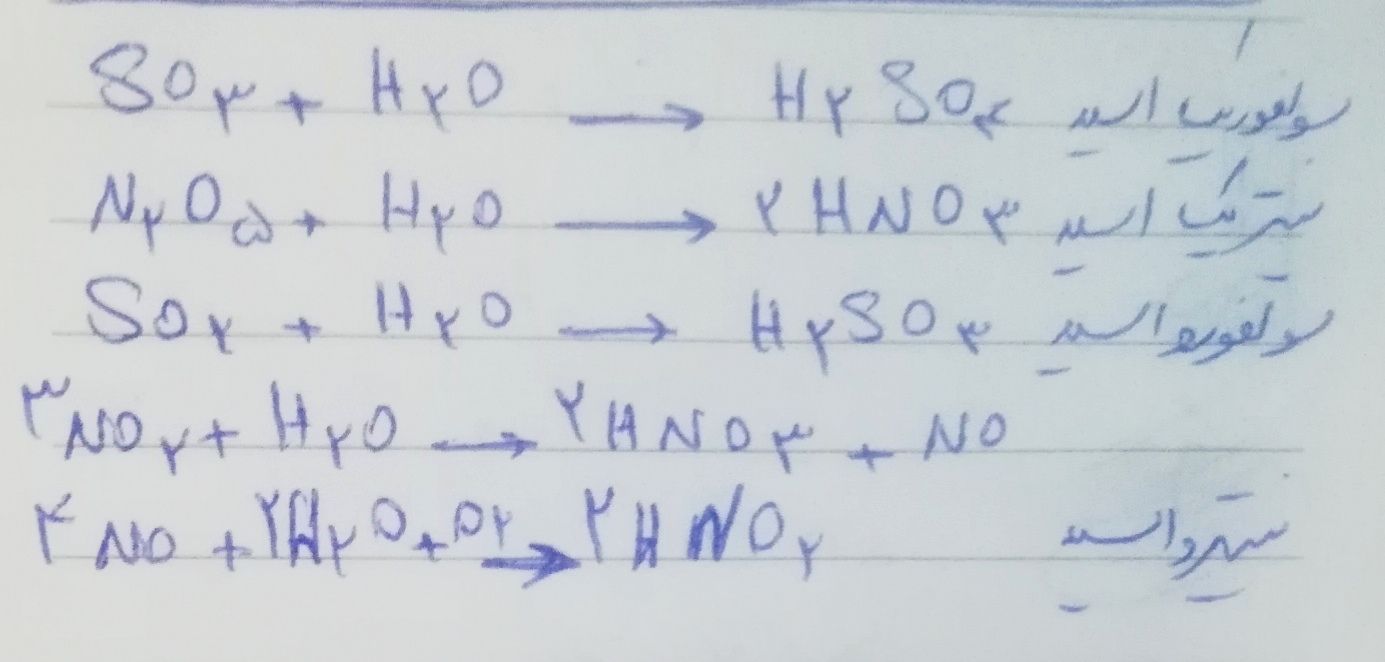 SO۳ + H۲O → H۲SO۴ سولفوریک اسید
N۲O۵ + H۲O → ۲HNO۳ نیتریک اسید
SO۲ + H۲O → H۲SO۳ سولفورو اسید
۳NO۲ + H۲O → ۲HNO۳ + NO
۴NO + ۲H۲O + O۲ → ۴HNO۲ نیترو اسید